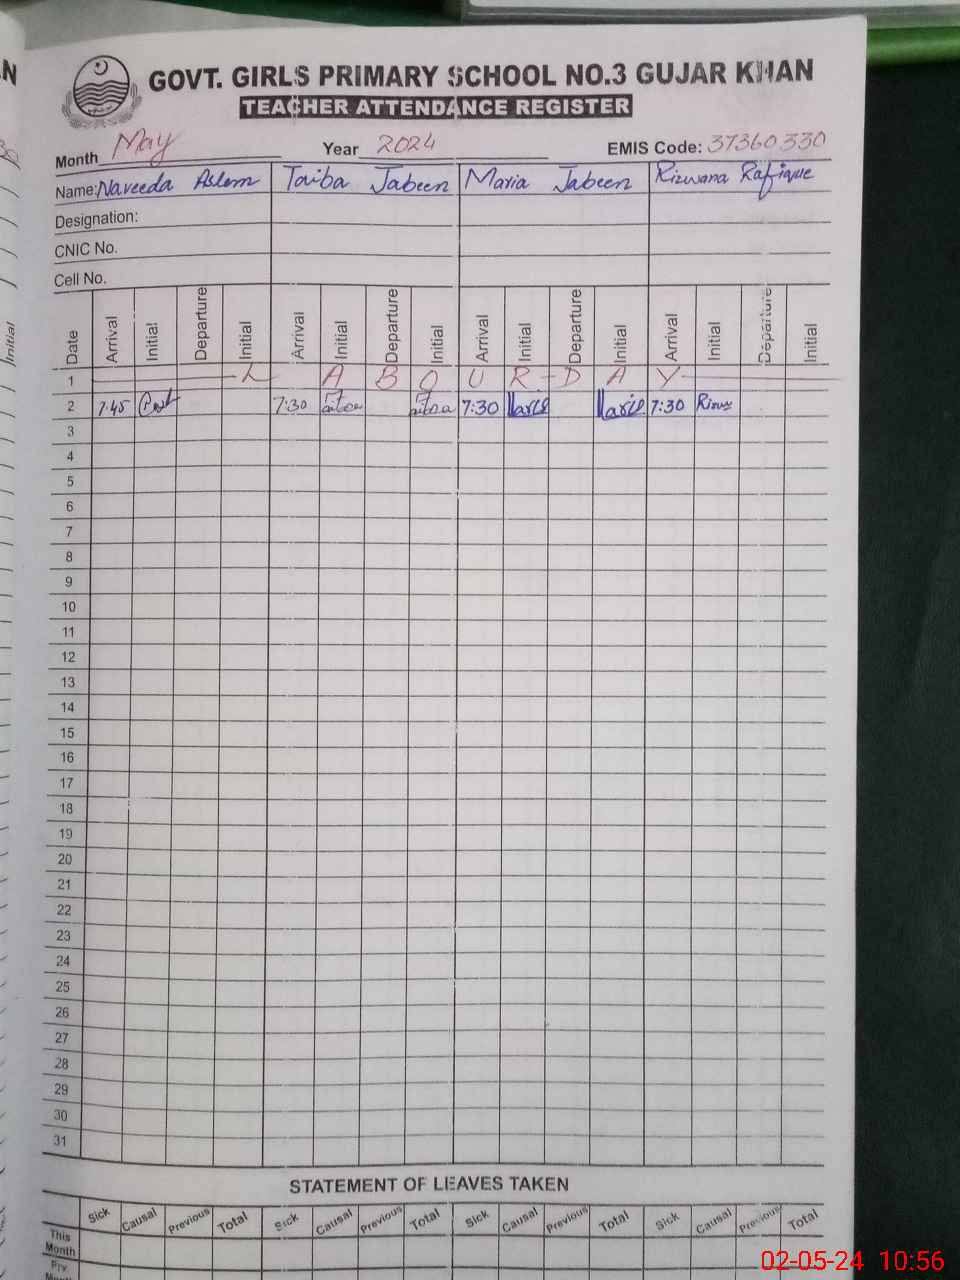 GOVT. GIRLS PRIMARY SCHOOL NO.3 GUJAR KHAN
TEACHER ATTENDANCE REGISTER
Month May Year 2024 EMIS Code: 37360330
Name: Naveeda Aslam Taiba Jabeen Maria Jabeen Rizwana Rafique
Designation:
CNIC No.
Cell No.
Date Arrival Initial Departure Initial Arrival Initial Departure Initial Arrival Initial Departure Initial Arrival Initial Departure Initial
1 L A B O U R - D A Y
2 7:45 7:30 7:30 Maria Maria 7:30 Rizw
3
4
5
6
7
8
9
10
11
12
13
14
15
16
17
18
19
20
21
22
23
24
25
26
27
28
29
30
31
STATEMENT OF LEAVES TAKEN
Sick Causal Previous Total Sick Causal Previous Total Sick Causal Previous Total Sick Causal Previous Total
This Month
Prv.
02-05-24 10:56
Initial